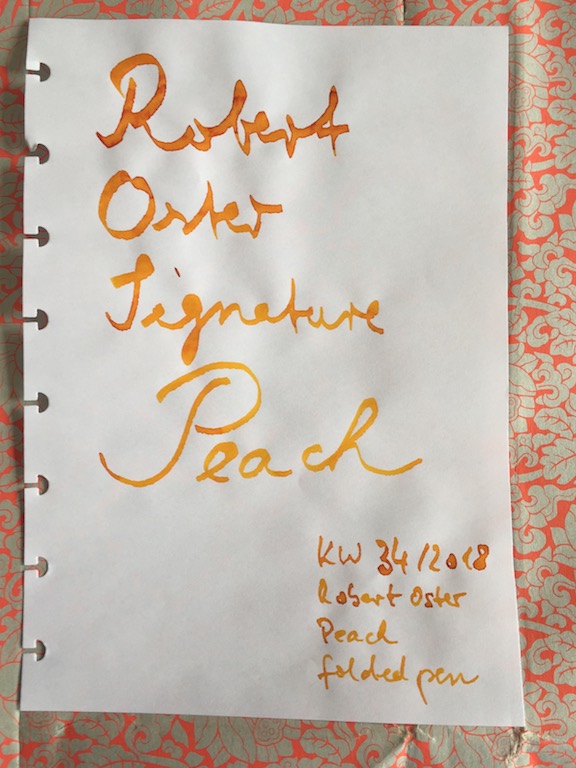 Robert
Oster
Signature
Peach
KW 34/2018
Robert Oster
Peach
folded pen